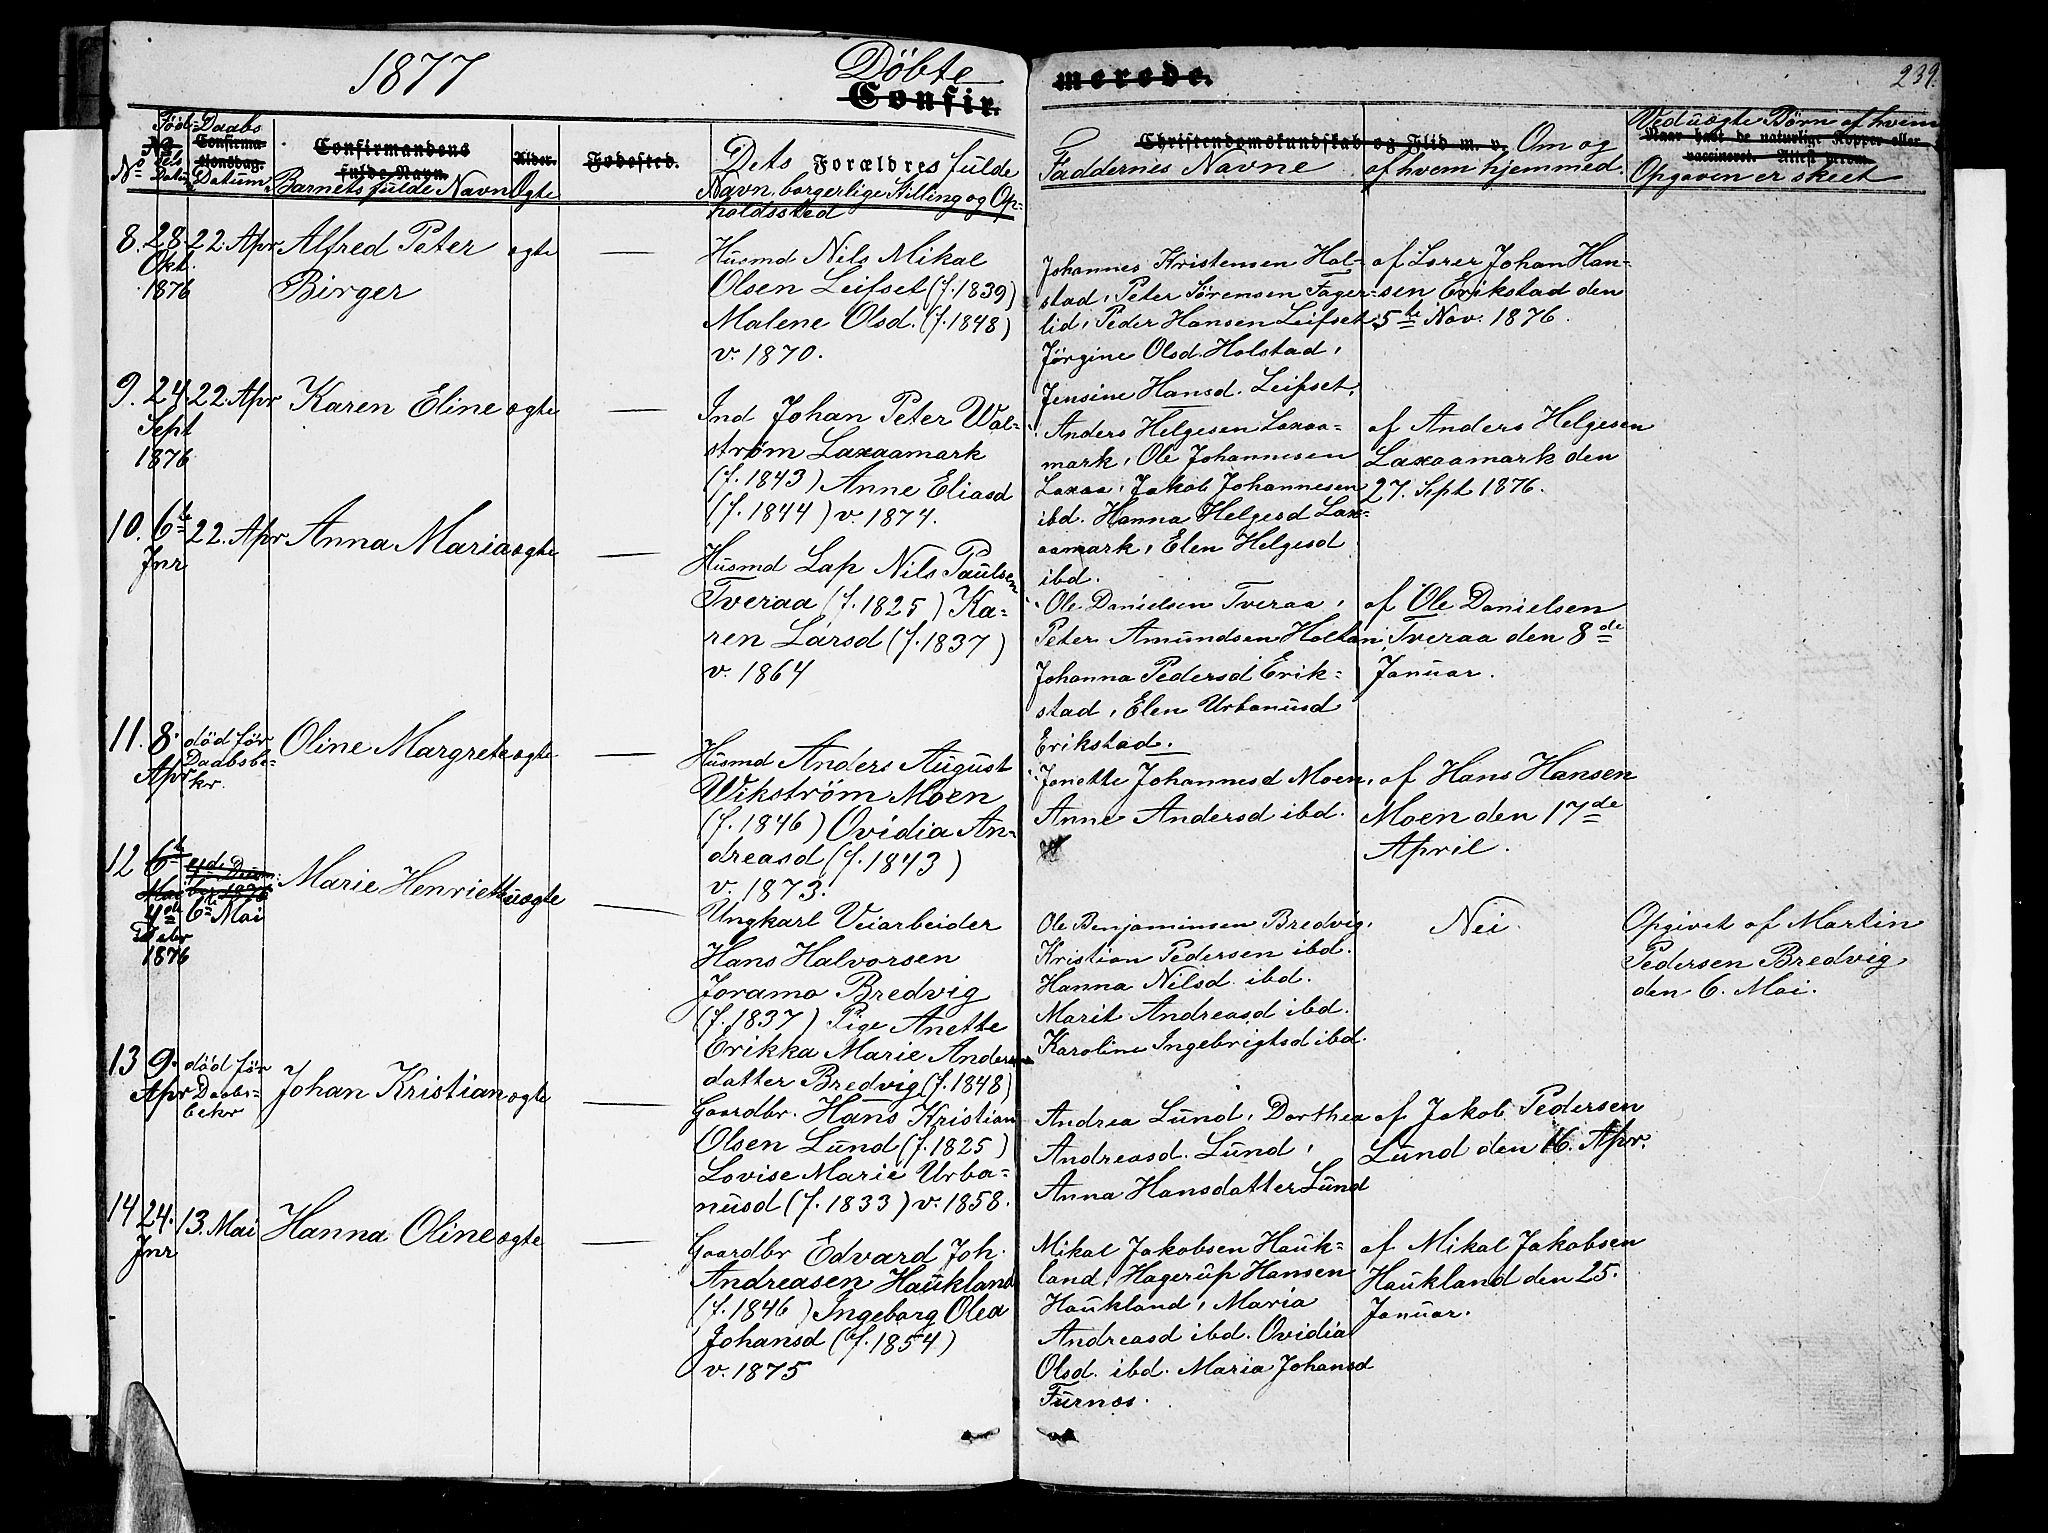 1877
Döbte
Confir- merede.
239.
No
Fødsels Datum
Daabs Datum
Confirmationsdag.
Confirmandens fulde Navn.
Barnets fulde Navn
Alder.
Ægte
Fødested.
Dets Forældres fulde
Navn, borgerlige Stilling og Op-
holdssted
Christendomskundskab og Flid m. v.
Faddernes Navne
Om og
af hvem hjemmed.
Ved uægte Børn af hvem
Naar havt de naturlige Kopper eller
vaccineret. Attest herom.
Opgaven er skeet
8. 28. Okt. 1876
22. Apr
Alfred Peter
Birger
ægte
—
Husmd Nils Mikal
Olsen Leifset (f. 1839)
Malene Olsd. (f. 1848)
v. 1870.
Johannes Kristensen Hol-
stad, Peter Sørensen Fager-
lid, Peder Hansen Leifset,
Jørgine Olsd. Holstad,
Jensine Hansd. Leifset.
af Lærer Johan Han-
sen Erikstad den
5te Nov. 1876.
9. 24 Sept 1876
22. Apr
Karen Eline
ægte
—
Ind Johan Peter Wal-
ström Laxaamark
(f. 1843) Anne Eliasd
(f. 1844) v. 1874.
Anders Helgesen Laxaa-
mark, Ole Johannesen
Laxaa, Jakob Johannesen
ibd. Hanna Helgesd Lax-
aamark, Elen Helgesd
ibd.
af Anders Helgesen
Laxaamark den
27. Sept 1876.
10. 6te Jnr
22. Apr
Anna Maria
ægte
—
Husmd Lap Nils Paulsen
Tveraa (f. 1825) Ka-
ren Larsd (f. 1837)
v. 1864
Ole Danielsen Tveraa,
Peter Amundsen Holtan,
Johanna Pedersd Erik-
stad, Elen Urbanusd
Erikstad.
af Ole Danielsen
Tveraa den 8de
Januar.
11. 8. Apr
död før
Daabsbe-
kr.
Oline Margrete
ægte
—
Husmd Anders August
Wikström Moen
(f. 1846) Ovidia An-
dreasd (f. 1843)
v. 1873.
Jonette Johannesd Moen,
Anne Andersd ibd.
af Hans Hansen
Moen den 17de
April.
12 6te Mai
4de 1876
6te Mai
Marie Henriette
uægte
—
Ungkarl Veiarbeider
Hans Halvorsen
Joramo Bredvig
(f. 1837) Pige Anette
Erikka Marie Anders
datter Bredvig (f. 1848)
Ole Benjaminsen Bredvig,
Kristian Pedersen ibd.
Hanna Nilsd. ibd.
Marit Andreasd ibd.
Karoline Ingebrigtsd ibd.
Nei.
Opgivet af Martin
Pedersen Bredvig
den 6. Mai.
13 9. Apr
död før
Daabs-
bekr
Johan Kristian
ægte
—
Gaardbr. Hans Kristian
Olsen Lund (f. 1825)
Lovise Marie Urba-
nusd (f. 1833) v. 1858.
Andrea Lund, Dorthea
Andreasd. Lund,
Anna Hansdatter Lund
af Jakob Pedersen
Lund den 16. Apr.
14 24. Jnr
13. Mai
Hanna Oline
ægte
—
Gaardbr Edvard Joh.
Andreasen Haukland
(f. 1846) Ingeborg Olea
Johansd (f. 1854)
v. 1875
Mikal Jakobsen Hauk-
land, Hagerup Hansen
Haukland, Maria
Andreasd ibd. Ovidia
Olsd. ibd. Maria Johansd
Furnæs.
af Mikal Jakobsen
Haukland den 25.
Januar.